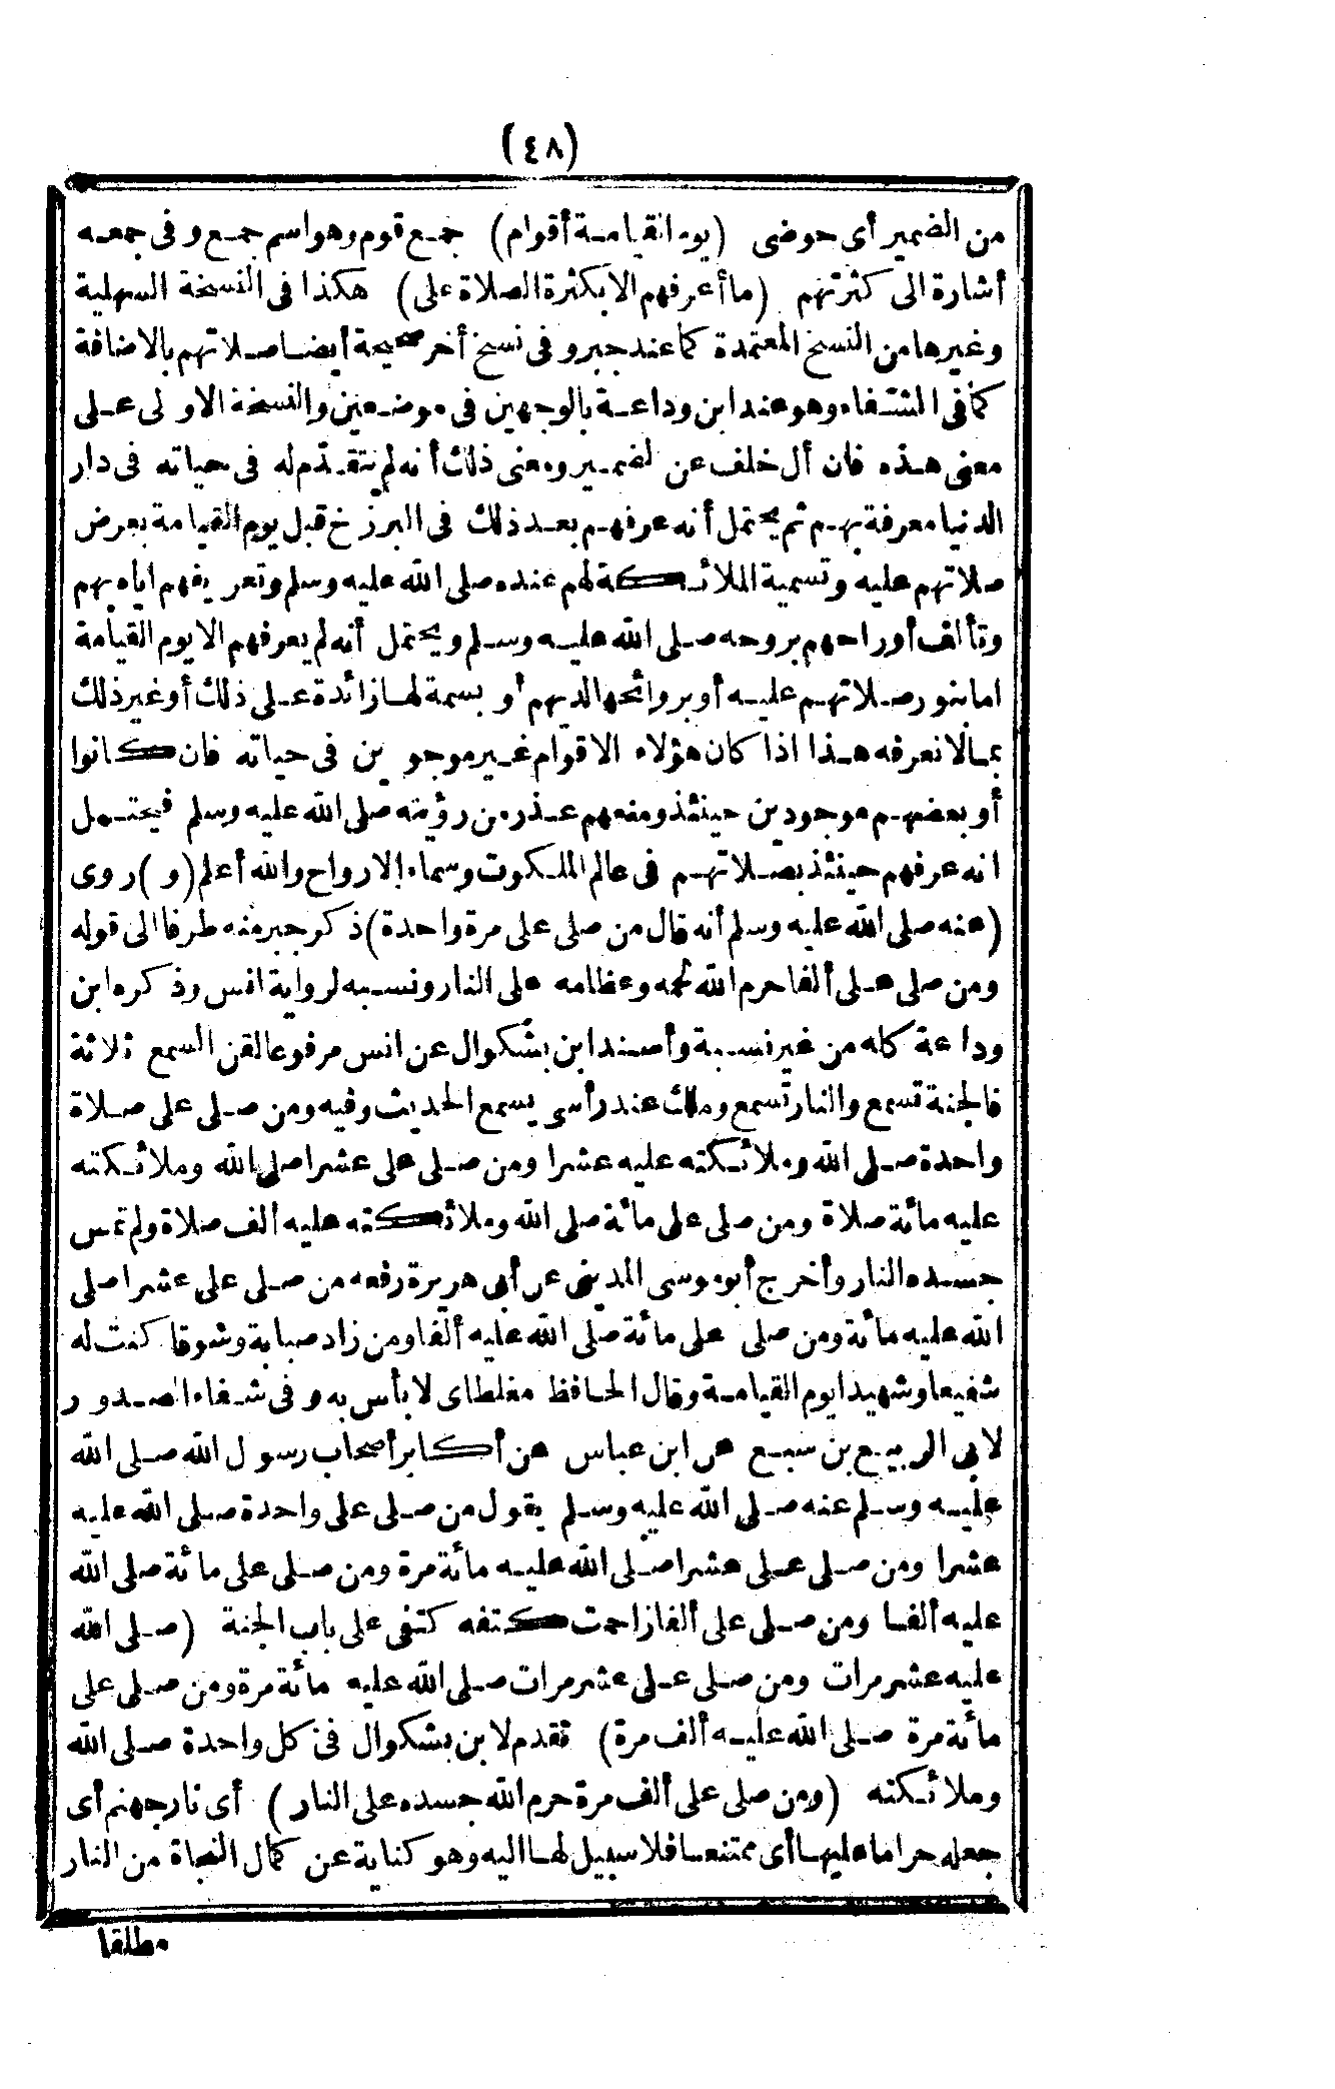 (٤٨)
من الضمير أى حوضى (يوم القيامة أقوام) جمع قوم وهو اسم جمع وفى جمعه
أشارة الى كثرتهم (ما أعرفهم الا بكثرة الصلاة على) هكذا فى النسخة السهلية
وغيرها من النسخ المعتمدة كما عند جبر وفى نسخ أخر صحيحة أيضا صلاتهم بالاضافة
كما فى الشفاء وهو عند ابن وداعة بالوجهين فى موضعين والنسخة الاولى على
معنى هذه فان أل خلف عن لضمير ومعنى ذلك أنه لم يتقدّم له فى حياته فى دار
الدنيا معرفة بهم ثم يحتمل أنه عرفهم بعد ذلك فى البرزخ قبل يوم القيامة بعرض
صلاتهم عليه وتسمية الملائكة لهم عنده صلى الله عليه وسلم وتعريفهم اياه بهم
وتألف أرواحهم بروحه صلى الله عليه وسلم ويحتمل أنه لم يعرفهم الا يوم القيامة
اما بنور صلاتهم عليه أو بروائحها لديهم أو بسمة لها زائدة على ذلك أو غير ذلك
بما لا نعرفه هذا اذا كان هؤلاء الاقوام غير موجودين فى حياته فان كانوا
أو بعضهم موجودين حينئذ ومنعهم عذر من رؤيته صلى الله عليه وسلم فيحتمل
انه عرفهم حينئذ بصلاتهم فى عالم الملكوت وسماء الارواح والله أعلم (و) روى
(عنه صلى الله عليه وسلم أنه قال من صلى على مرة واحدة) ذكر جبر منه طرفا الى قوله
ومن صلى على ألفا حرم الله لحمه وعظامه على النار ونسبه لرواية انس وذكره ابن
وداعة كله من غير نسبة وأسند ابن بشكوال عن انس مرفوعا لقن السمع ثلاثة
فالجنة تسمع والنار تسمع وملك عند رأسى يسمع الحديث وفيه ومن صلى على صلاة
واحدة صلى الله وملائكته عليه عشرا ومن صلى على عشرا صلى الله وملائكته
عليه مائة صلاة ومن صلى على مائة صلى الله وملائكته عليه ألف صلاة ولم تمس
جسده النار وأخرج أبو موسى المدينى عن أبى هريرة رفعه من صلى على عشرا صلى
الله عليه مائة ومن صلى على مائة صلى الله عليه ألفا ومن زاد صبابة وشوقا كنت له
شفيعا وشهيدا يوم القيامة وقال الحافظ مغلطاى لا بأس به وفى شفاء الصدور
لابى الربيع بن سبع عن ابن عباس عن أكابر أصحاب رسول الله صلى الله
عليه وسلم عنه صلى الله عليه وسلم يقول من صلى على واحدة صلى الله عليه
عشرا ومن صلى على عشرا صلى الله عليه مائة مرة ومن صلى على مائة صلى الله
عليه ألفا ومن صلى على ألفا زاحمت كتفه كتفى على باب الجنة (صلى الله
عليه عشر مرات ومن صلى على عشر مرات صلى الله عليه مائة مرة ومن صلى على
مائة مرة صلى الله عليه ألف مرة) تقدم لابن بشكوال فى كل واحدة صلى الله
وملائكته (ومن صلى على ألف مرة حرم الله جسده على النار) أى نار جهنم أى
جعله حراما عليها أى ممتنعا فلا سبيل لها اليه وهو كناية عن كمال النجاة من النار
مطلقا